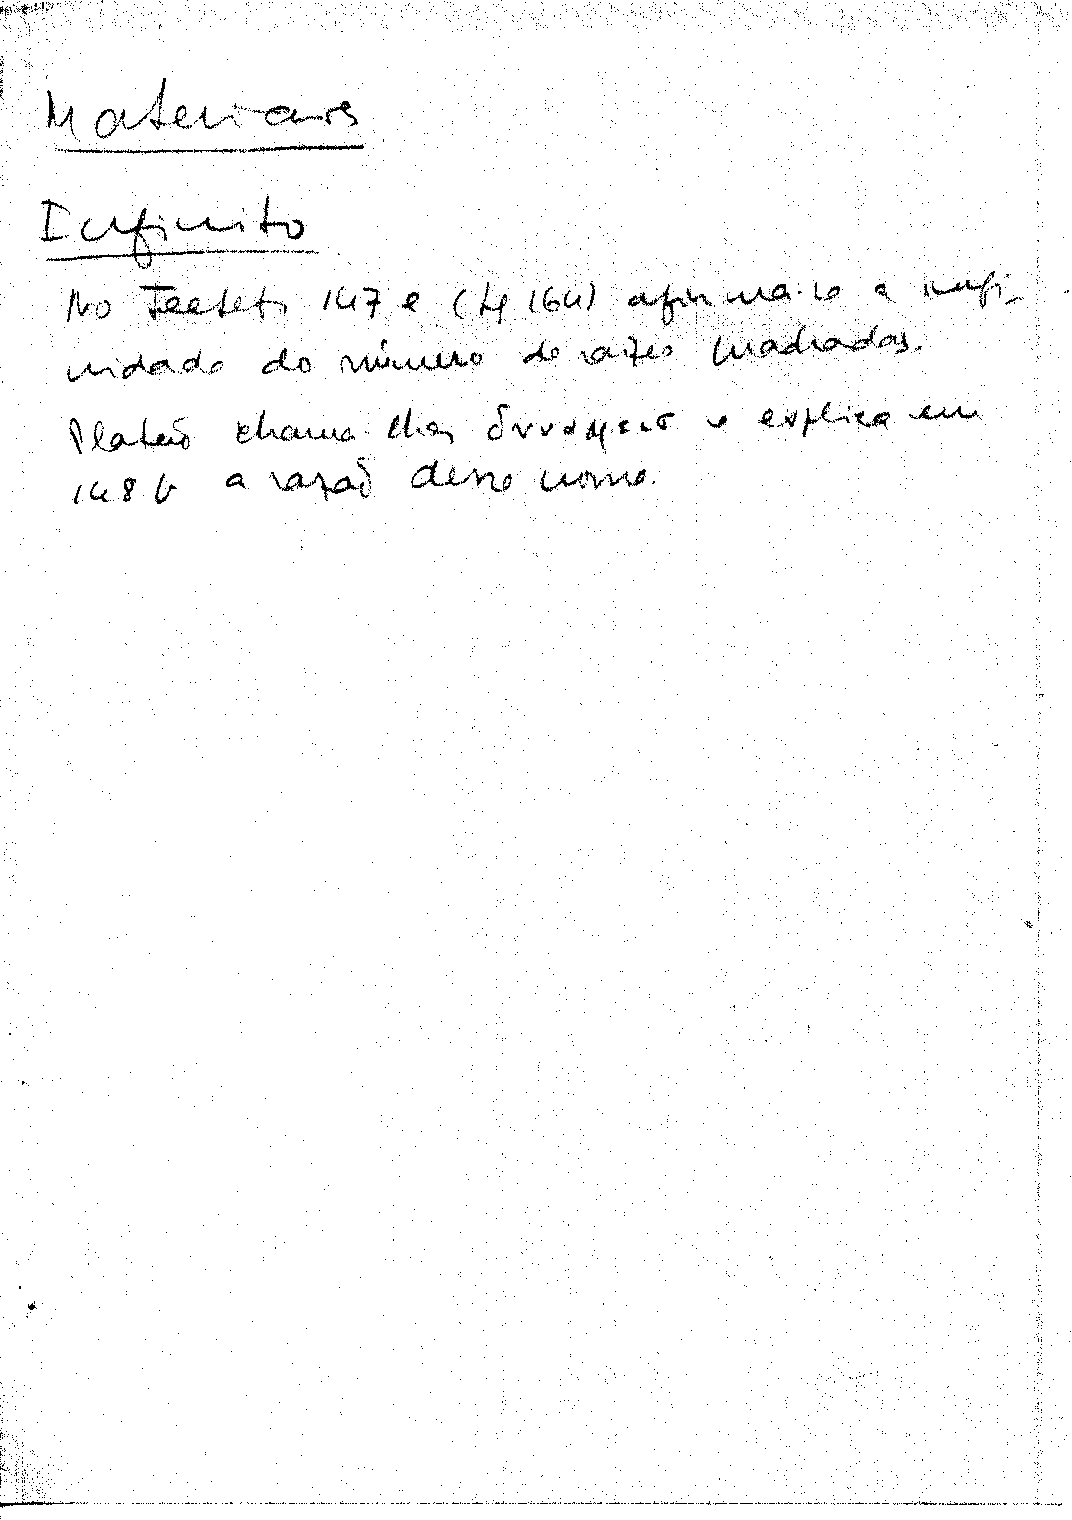 Materiais
Infinito
No Teeteto 147 e (Lf 164) afirma-se a infi-
nidade do número de raízes quadradas.
Platão chama-lhes δυνάμεισ e explica em
148 b a razão desse nome.